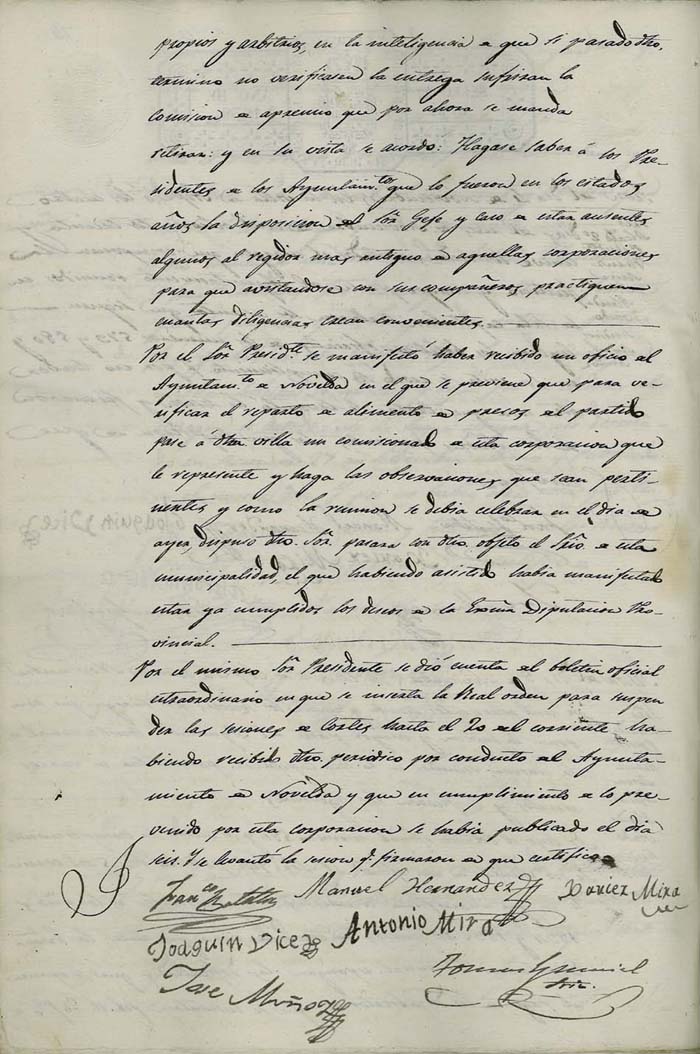 propios y arbitrios, en la inteligencia de que si pasado dho.
termino no verificasen la entrega sufriran la
comision de apremio que por ahora se manda
retirar: y en su vista se acordó: Hagase saber á los Pre-
sidentes de los Ayuntam.tos que lo fueron en los citados
años la disposicion del Sor. Gefe y caso de estar ausentes
algunos al regidor mas antiguo de aquellas corporaciones
para que avistandose con sus compañeros practiquen
cuantas diligencias crean convenientes.
Por el Sor. Presid.te se manifestó haber recibido un oficio del
Ayuntam.to de Novelda en el que se previene que para ve-
rificar el reparto de alimento de presos del partido
pase á dha villa un comisionado de esta corporacion que
le represente y haga las observaciones que sean perti-
nentes y como la reunion se debia celebrar en el dia de
ayer, dispuso dho. Sor. pasara con dho. objeto el Srio. de esta
municipalidad, el que habiendo asistido habia manifestado
estar ya cumplidos los deseos de la Exma Diputacion Pro-
vincial.
Por el mismo Sor. Presidente se dió cuenta del boletin oficial
extraordinario en que se inserta la Real orden para suspen
der las sesiones de Cortes hasta el 20 del corriente ha-
biendo recibido dho. periodico por conducto del Ayunta-
miento de Novelda y que en cumplimiento de lo pre-
venido por esta corporacion se habia publicado el dia
seis. Y se levantó la sesion q. firmaron de que certifico.
Fran.co Manuel Hernandez Xavier Mira
Joaquin Vicez Antonio Mira
Jose Muñoz Tomas
Srio.
Joaquin Vicez